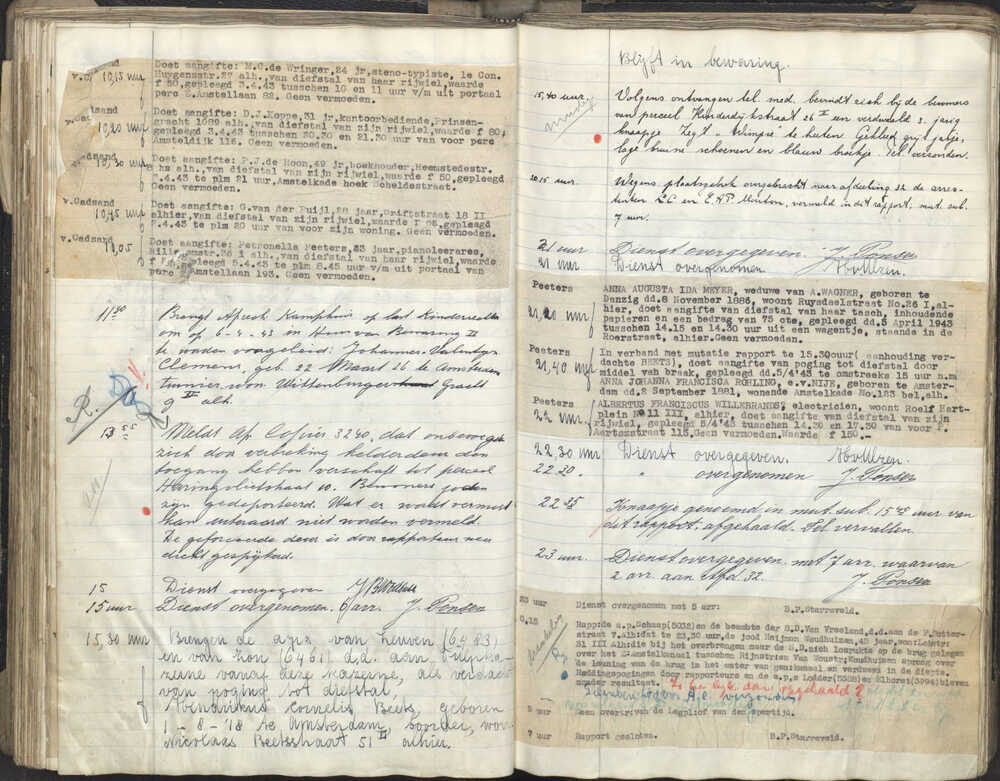 v.C
10,15 uur
Doet aangifte: M.C.de Wringer,24 jr,steno-typiste, 1e Con.
Huygensstr.27 alh.,van diefstal van haar rijwiel,waarde
f 50,gepleegd 3.4.43 tusschen 10 en 11 uur v/m uit portaal
perc Z.Amstellaan 82. Geen vermoeden.
v.Cadsand
10,20 uur
Doet aangifte: D.J.Koppe,31 jr,kantoorbediende,Prinsen-
gracht 1080 alh.,van diefstal van zijn rijwiel,waarde f 80,
gepleegd 3.4.43 tusschen 20.30 en 21.30 uur van voor perc
Amsteldijk 116. Geen vermoeden.
v.Cadsand
10,30 uur
Doet aangifte: P.J.de Hoon,49 jr,boekhouder,Heemstedestr.
hs alh.,van diefstal van zijn rijwiel,waarde f 50,gepleegd
.4.43 te plm 21 uur,Amstelkade hoek Scheldestraat.
Geen vermoeden.
v.Cadsand
10,45 uur
Doet aangifte: G.van der Puijl,28 jaar,Driftstraat 18 II
alhier,van diefstal van zijn rijwiel,waarde f 65,gepleegd
.4.43 te plm 20 uur van voor zijn woning. Geen vermoeden.
v.Cadsand
11,05
Doet aangifte: Petronella Peeters,23 jaar,pianolerares,
str.36 i alh.,van diefstal van haar rijwiel,waarde
gepleegd 5.4.43 te plm 8.45 uur v/m uit portaal van
perc Amstellaan 193. Geen vermoeden.
11 30
Brengt Afrech Kamphuis op last Kinderrechter
om op 6-4-43 in Huis van Bewaring II
te worden voorgeleid: Johannes Valentijn
Clemens, geb. 22 Maart 26 te Amsterdam
won Wittenburger Gracht
9 II alh.
R.
13 55
Meldt Ap. Cosijns 3240, dat onbevoegden
zich door verbreking kelderdeur den
toegang hebben verschaft tot perceel
Haringvlietstraat 10. Bewoners joden
zijn gedeporteerd. Wat er wordt vermist
kan uiteraard niet worden vermeld.
De geforceerde deur is door rapporteur weer
dicht gespijkerd.
15
Dienst overgegeven
15 uur
Dienst overgenomen. 6 arr. J. Ponsen
15,30 uur
Brengen de agn. van Leuwen (6483)
en van Zon (6461) d.d. aan
vanaf deze kazerne, als verdacht
van poging tot diefstal,
Hendrikus Cornelis Beets, geboren
1-8-'18 te Amsterdam, boorder, won.
Nicolaas Beetsstraat 51 II alhier.
Blijft in bewaring.
15,40 uur.
Volgens ontvangen tel. med. bevindt zich bij de bewoners
van perceel Kinderdijkstraat 26 II een verdwaald 3 jarig
knaapje. Zegt "Wimpie" te heeten. Gekleed grijs jasje,
lage bruine schoenen en blauw broekje. Tel. verzonden.
20.15 uur.
Wegens plaatsgebrek overgebracht naar afdeeling 32 de arres-
tanten L.C. en E.A.P. Minton, vermeld in dit rapport, mut. sub.
7 uur.
21 uur
Dienst overgegeven. J. Ponsen
21 uur
Dienst overgenomen.
Peeters
21,20 uur
ANNA AUGUSTA IDA MEYER, weduwe van A.WAGNER, geboren te
Danzig dd.8 November 1886, woont Ruysdaelstraat No.26 I,al-
hier, doet aangifte van diefstal van haar tasch, inhoudende
papieren en een bedrag van 75 cts, gepleegd dd.5 April 1943
tusschen 14.15 en 14.30 uur uit een wagentje, staande in de
Roerstraat, alhier.Geen vermoeden.
Peeters
21,40 uur
In verband met mutatie rapport te 15.30uur( aanhouding ver-
dachte BEETS), doet aangifte van poging tot diefstal door
middel van braak, gepleegd dd.5/4'43 te omstreeks 15 uur n.m
ANNA JOHANNA FRANCISCA ROHLING, e.v.NIJE, geboren te Amster-
dam dd.2 September 1881, wonende Amstelkade No.183 bel,alh.
Peeters
22 uur
ALBERTUS FRANCISCUS WILLEBRANDS, electricien, woont Roelf Hart-
plein No 11 III, alhier, doet aangifte van diefstal van zijn
rijwiel, gepleegd 5/4'43 tusschen 14.30 en 17.30 van voor P.
Aertszstraat 115.Geen vermoeden.Waarde f 150.-
22,30 uur
Dienst overgegeven.
22.30
" overgenomen J. Ponsen
22 35
Knaapje genoemd in mut. sub. 15 40 uur van
dit rapport, afgehaald. Tel. vervallen.
23 uur.
Dienst overgegeven, met 7 arr. waarvan
2 arr. aan Afd. 32. J. Ponsen
23 uur
Dienst overgenomen met 5 arr: B.P.Starreveld.
0,15
Rapp:de a.p.Schaap(5032)en de beambte der S.D.Van Vreeland,d.d.aan de P.Potter-
straat v.alh:dat te 23,30 uur,de jood Heijman Woudhuizen,45 jaar,won:
31 III Alh:die bij het overbrengen naar de S.D.zich losrukte op de brug gelegen
over het Z:Amstelkanaal tusschen Rijnstr:en Van Woustr:Woudhuizen sprong over
de leuning van de brug in het water van gen:kanaal en verdween in de diepte.
Reddingspogingen door rapporteurs en de a.p.s Lodder(5308)en Elhorst(3994)bleven
zonder resultaat.
Is het lijk dan opgehaald?
5 uur
Geen overtr:van de legpliof van den spertijd.
7 uur
Rapport gesloten. B.P.Starreveld.